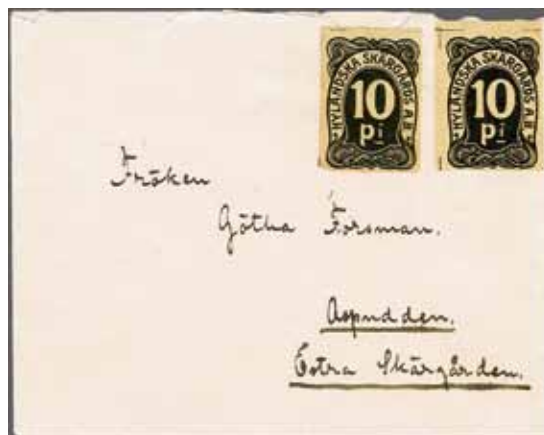 NYLÄNDSKA SKÄRGÅRDS A.B.
10
pi
NYLÄNDSKA SKÄRGÅRDS A.B.
10
pi
Fröken
Götha Forsman.
Aspudden.
Östra Skärgården.